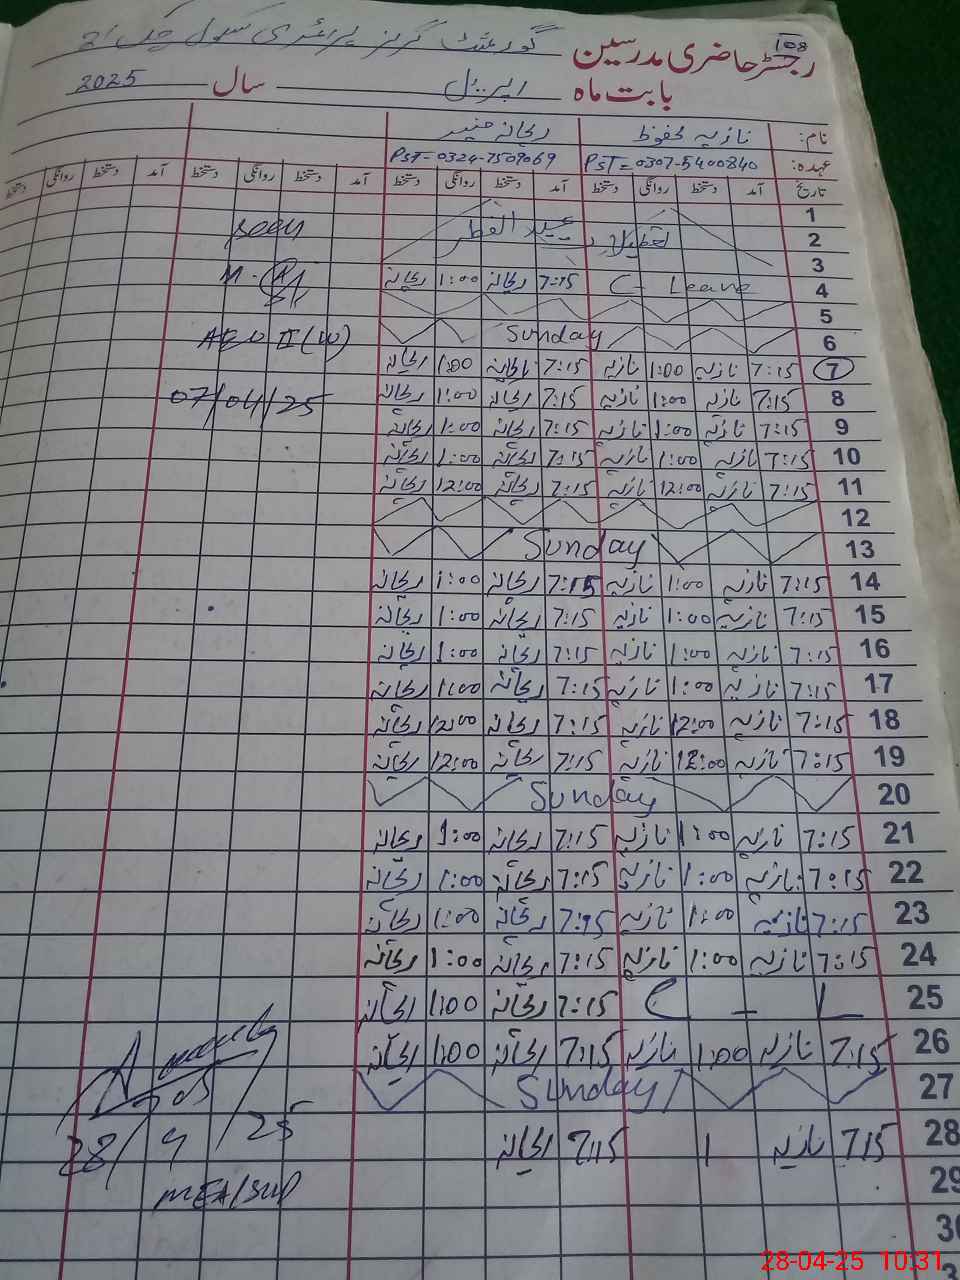 108
رجسٹر حاضری مدرسین گورنمنٹ گرلز پرائمری سکول چک
بابت ماہ اپریل سال 2025
نام: نازیہ محفوظ ریحانہ منیر
عہدہ: PST = 0307-5400840 PST = 0324-7509069
تاریخ آمد دستخط روانگی دستخط آمد دستخط روانگی دستخط آمد دستخط روانگی دستخط آمد دستخط روانگی دستخط
1
2 تعطیلات عید الفطر
3
4 C- Leave 7:15 ریحانہ 1:00 ریحانہ
5
6 Sunday
7 7:15 نازیہ 1:00 نازیہ 7:15 ریحانہ 1:00 ریحانہ
8 7:15 نازیہ 1:00 نازیہ 7:15 ریحانہ 1:00 ریحانہ
9 7:15 نازیہ 1:00 نازیہ 7:15 ریحانہ 1:00 ریحانہ
10 7:15 نازیہ 1:00 نازیہ 7:15 ریحانہ 1:00 ریحانہ
11 7:15 نازیہ 12:00 نازیہ 7:15 ریحانہ 12:00 ریحانہ
12
13 Sunday
14 7:15 نازیہ 1:00 نازیہ 7:15 ریحانہ 1:00 ریحانہ
15 7:15 نازیہ 1:00 نازیہ 7:15 ریحانہ 1:00 ریحانہ
16 7:15 نازیہ 1:00 نازیہ 7:15 ریحانہ 1:00 ریحانہ
17 7:15 نازیہ 1:00 نازیہ 7:15 ریحانہ 1:00 ریحانہ
18 7:15 نازیہ 12:00 نازیہ 7:15 ریحانہ 12:00 ریحانہ
19 7:15 نازیہ 12:00 نازیہ 7:15 ریحانہ 12:00 ریحانہ
20 Sunday
21 7:15 نازیہ 1:00 نازیہ 7:15 ریحانہ 1:00 ریحانہ
22 7:15 نازیہ 1:00 نازیہ 7:15 ریحانہ 1:00 ریحانہ
23 7:15 نازیہ 1:00 نازیہ 7:15 ریحانہ 1:00 ریحانہ
24 7:15 نازیہ 1:00 نازیہ 7:15 ریحانہ 1:00 ریحانہ
25 C - L 7:15 ریحانہ 1:00 ریحانہ
26 7:15 نازیہ 1:00 نازیہ 7:15 ریحانہ 1:00 ریحانہ
27 Sunday
28 7:15 نازیہ 1 7:15 ریحانہ
29
30
Seen
AEO II (W)
07/04/25
28/4/25
MEA/
28-04-25 10:31